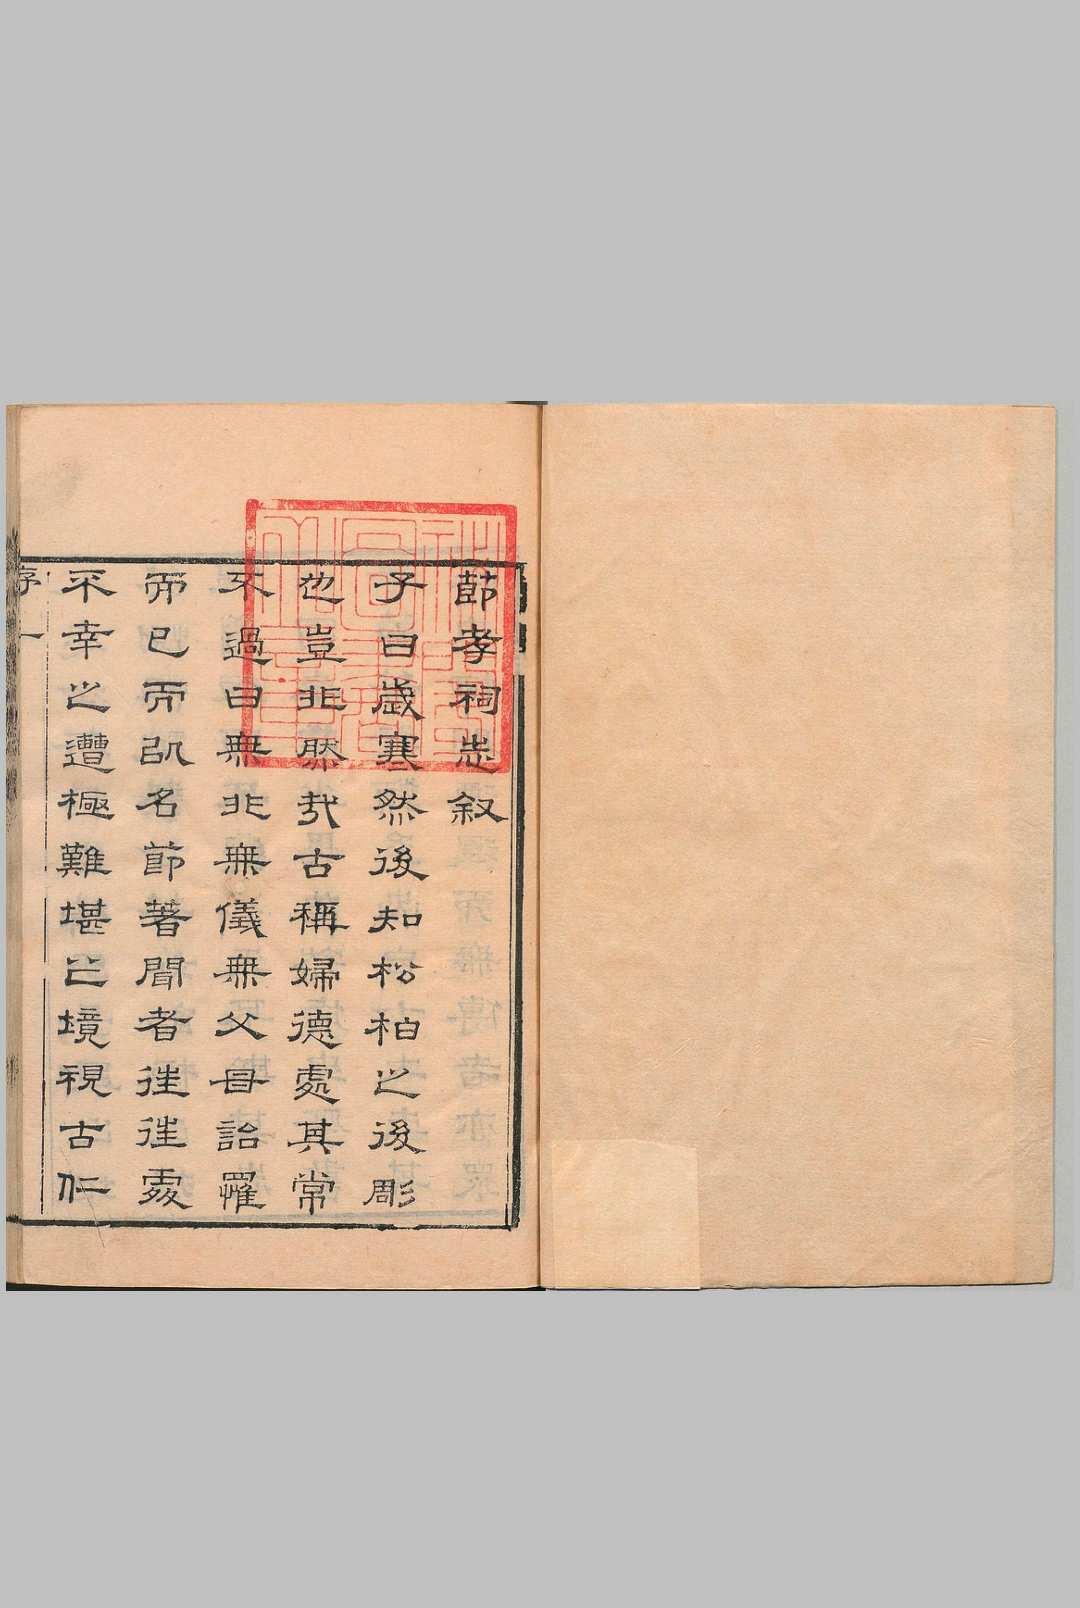 節孝祠志叙
子曰歲寒然後知松柏之後彫
也豈非然哉古稱婦德處其常
不過曰無非無儀無父母詒罹
而已而以名節著聞者徃徃處
不幸之遭極難堪之境視古仁
序 一